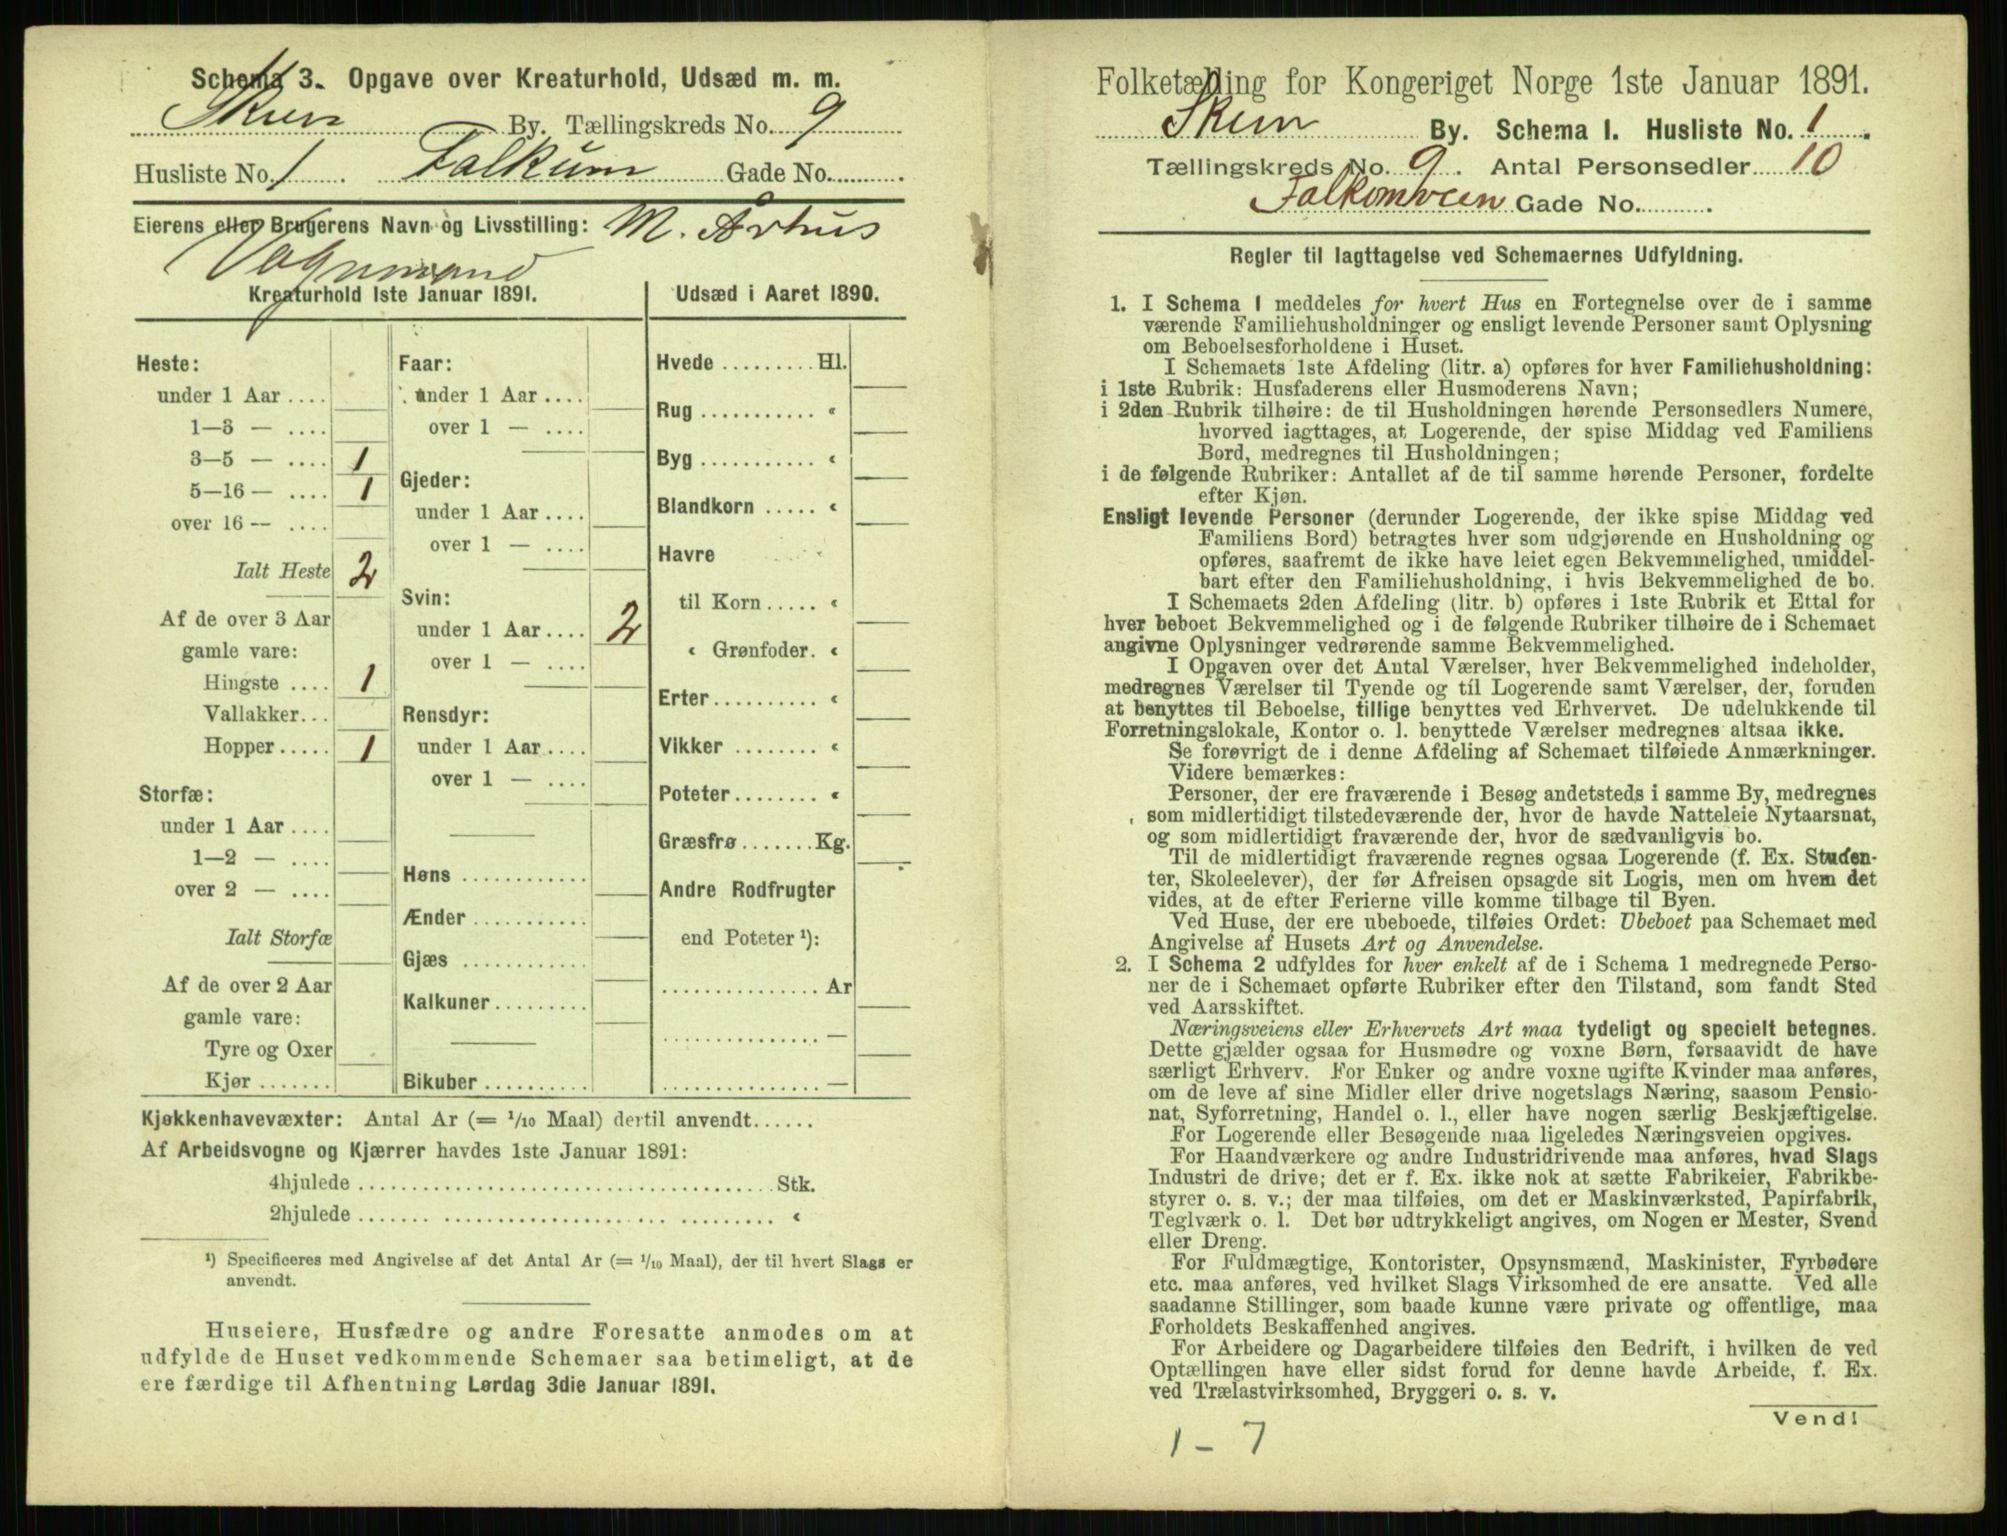 Schema 3. Opgave over Kreaturhold, Udsæd m. m.
Skien By. Tællingskreds No. 9
Husliste No. 1 Falkum Gade No.
Eierens eller Brugerens Navn og Livsstilling: M. Århus
Vognmand
Kreaturhold 1ste Januar 1891.
Heste:
under 1 Aar ....
1—3 — ....
3—5 — .... 1
5—16 — .... 1
over 16 — ....
Ialt Heste 2
Af de over 3 Aar
gamle vare:
Hingste .... 1
Vallakker...
Hopper..... 1
Storfæ:
under 1 Aar ....
1—2 — ....
over 2 — ....
Ialt Storfæ
Af de over 2 Aar
gamle vare:
Tyre og Oxer
Kjør.......
Faar:
under 1 Aar ....
over 1 — ....
Gjeder:
under 1 Aar ....
over 1 — ....
Svin:
under 1 Aar .... 2
over 1 — ....
Rensdyr:
under 1 Aar ....
over 1 — ....
Høns ............
Ænder ...........
Gjæs ............
Kalkuner.........
Bikuber ..........
Udsæd i Aaret 1890.
Hvede ......... Hl.
Rug ........... «
Byg ........... «
Blandkorn ..... «
Havre
til Korn..... «
« Grønfoder. «
Erter.......... «
Vikker ........ «
Poteter........ «
Græsfrø.......Kg.
Andre Rodfrugter
end Poteter ¹):
............... Ar
............... —
............... —
Kjøkkenhavevæxter: Antal Ar (= 1/10 Maal) dertil anvendt......
Af Arbeidsvogne og Kjærrer havdes 1ste Januar 1891:
4hjulede ....................................... Stk.
2hjulede ....................................... «
¹) Specificeres med Angivelse af det Antal Ar (= 1/10 Maal), der til hvert Slags er
anvendt.
Huseiere, Husfædre og andre Foresatte anmodes om at
udfylde de Huset vedkommende Schemaer saa betimeligt, at de
ere færdige til Afhentning Lørdag 3die Januar 1891.
Folketælling for Kongeriget Norge 1ste Januar 1891.
Skien By. Schema 1. Husliste No. 1.
Tællingskreds No. 9. Antal Personsedler 10
Falkomveien Gade No. .
Regler til Iagttagelse ved Schemaernes Udfyldning.
1. I Schema 1 meddeles for hvert Hus en Fortegnelse over de i samme
værende Familiehusholdninger og ensligt levende Personer samt Oplysning
om Beboelsesforholdene i Huset.
I Schemaets 1ste Afdeling (litr. a) opføres for hver Familiehusholdning:
i 1ste Rubrik: Husfaderens eller Husmoderens Navn;
i 2den Rubrik tilhøire: de til Husholdningen hørende Personsedlers Numere,
hvorved iagttages, at Logerende, der spise Middag ved Familiens
Bord, medregnes til Husholdningen;
i de følgende Rubriker: Antallet af de til samme hørende Personer, fordelte
efter Kjøn.
Ensligt levende Personer (derunder Logerende, der ikke spise Middag ved
Familiens Bord) betragtes hver som udgjørende en Husholdning og
opføres, saafremt de ikke have leiet egen Bekvemmelighed, umiddel-
bart efter den Familiehusholdning, i hvis Bekvemmelighed de bo.
I Schemaets 2den Afdeling (litr. b) opføres i 1ste Rubrik et Ettal for
hver beboet Bekvemmelighed og i de følgende Rubriker tilhøire de i Schemaet
angivne Oplysninger vedrørende samme Bekvemmelighed.
I Opgaven over det Antal Værelser, hver Bekvemmelighed indeholder,
medregnes Værelser til Tyende og til Logerende samt Værelser, der, foruden
at benyttes til Beboelse, tillige benyttes ved Erhvervet. De udelukkende til
Forretningslokale, Kontor o. l. benyttede Værelser medregnes altsaa ikke.
Se forøvrigt de i denne Afdeling af Schemaet tilføiede Anmærkninger.
Videre bemærkes:
Personer, der ere fraværende i Besøg andetsteds i samme By, medregnes
som midlertidigt tilstedeværende der, hvor de havde Natteleie Nytaarsnat,
og som midlertidigt fraværende der, hvor de sædvanligvis bo.
Til de midlertidigt fraværende regnes ogsaa Logerende (f. Ex. Studen-
ter, Skoleelever), der før Afreisen opsagde sit Logis, men om hvem det
vides, at de efter Ferierne ville komme tilbage til Byen.
Ved Huse, der ere ubeboede, tilføies Ordet: Ubeboet paa Schemaet med
Angivelse af Husets Art og Anvendelse.
2. I Schema 2 udfyldes for hver enkelt af de i Schema 1 medregnede Perso-
ner de i Schemaet opførte Rubriker efter den Tilstand, som fandt Sted
ved Aarsskiftet.
Næringsveiens eller Erhvervets Art maa tydeligt og specielt betegnes.
Dette gjælder ogsaa for Husmødre og voxne Børn, forsaavidt de have
særligt Erhverv. For Enker og andre voxne ugifte Kvinder maa anføres,
om de leve af sine Midler eller drive nogetslags Næring, saasom Pensio-
nat, Syforretning, Handel o. l., eller have nogen særlig Beskjæftigelse.
For Logerende eller Besøgende maa ligeledes Næringsveien opgives.
For Haandværkere og andre Industridrivende maa anføres, hvad Slags
Industri de drive; det er f. Ex. ikke nok at sætte Fabrikeier, Fabrikbe-
styrer o. s. v.; der maa tilføies, om det er Maskinværksted, Papirfabrik,
Teglværk o. l. Det bør udtrykkeligt angives, om Nogen er Mester, Svend
eller Dreng.
For Fuldmægtige, Kontorister, Opsynsmænd, Maskinister, Fyrbødere
etc. maa anføres, ved hvilket Slags Virksomhed de ere ansatte. Ved alle
saadanne Stillinger, som baade kunne være private og offentlige, maa
Forholdets Beskaffenhed angives.
For Arbeidere og Dagarbeidere tilføies den Bedrift, i hvilken de ved
Optællingen have eller sidst forud for denne havde Arbeide, f. Ex.
ved Trælastvirksomhed, Bryggeri o. s. v.
Vend!
1 - 7